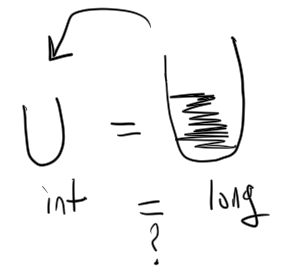 =
int = long
?